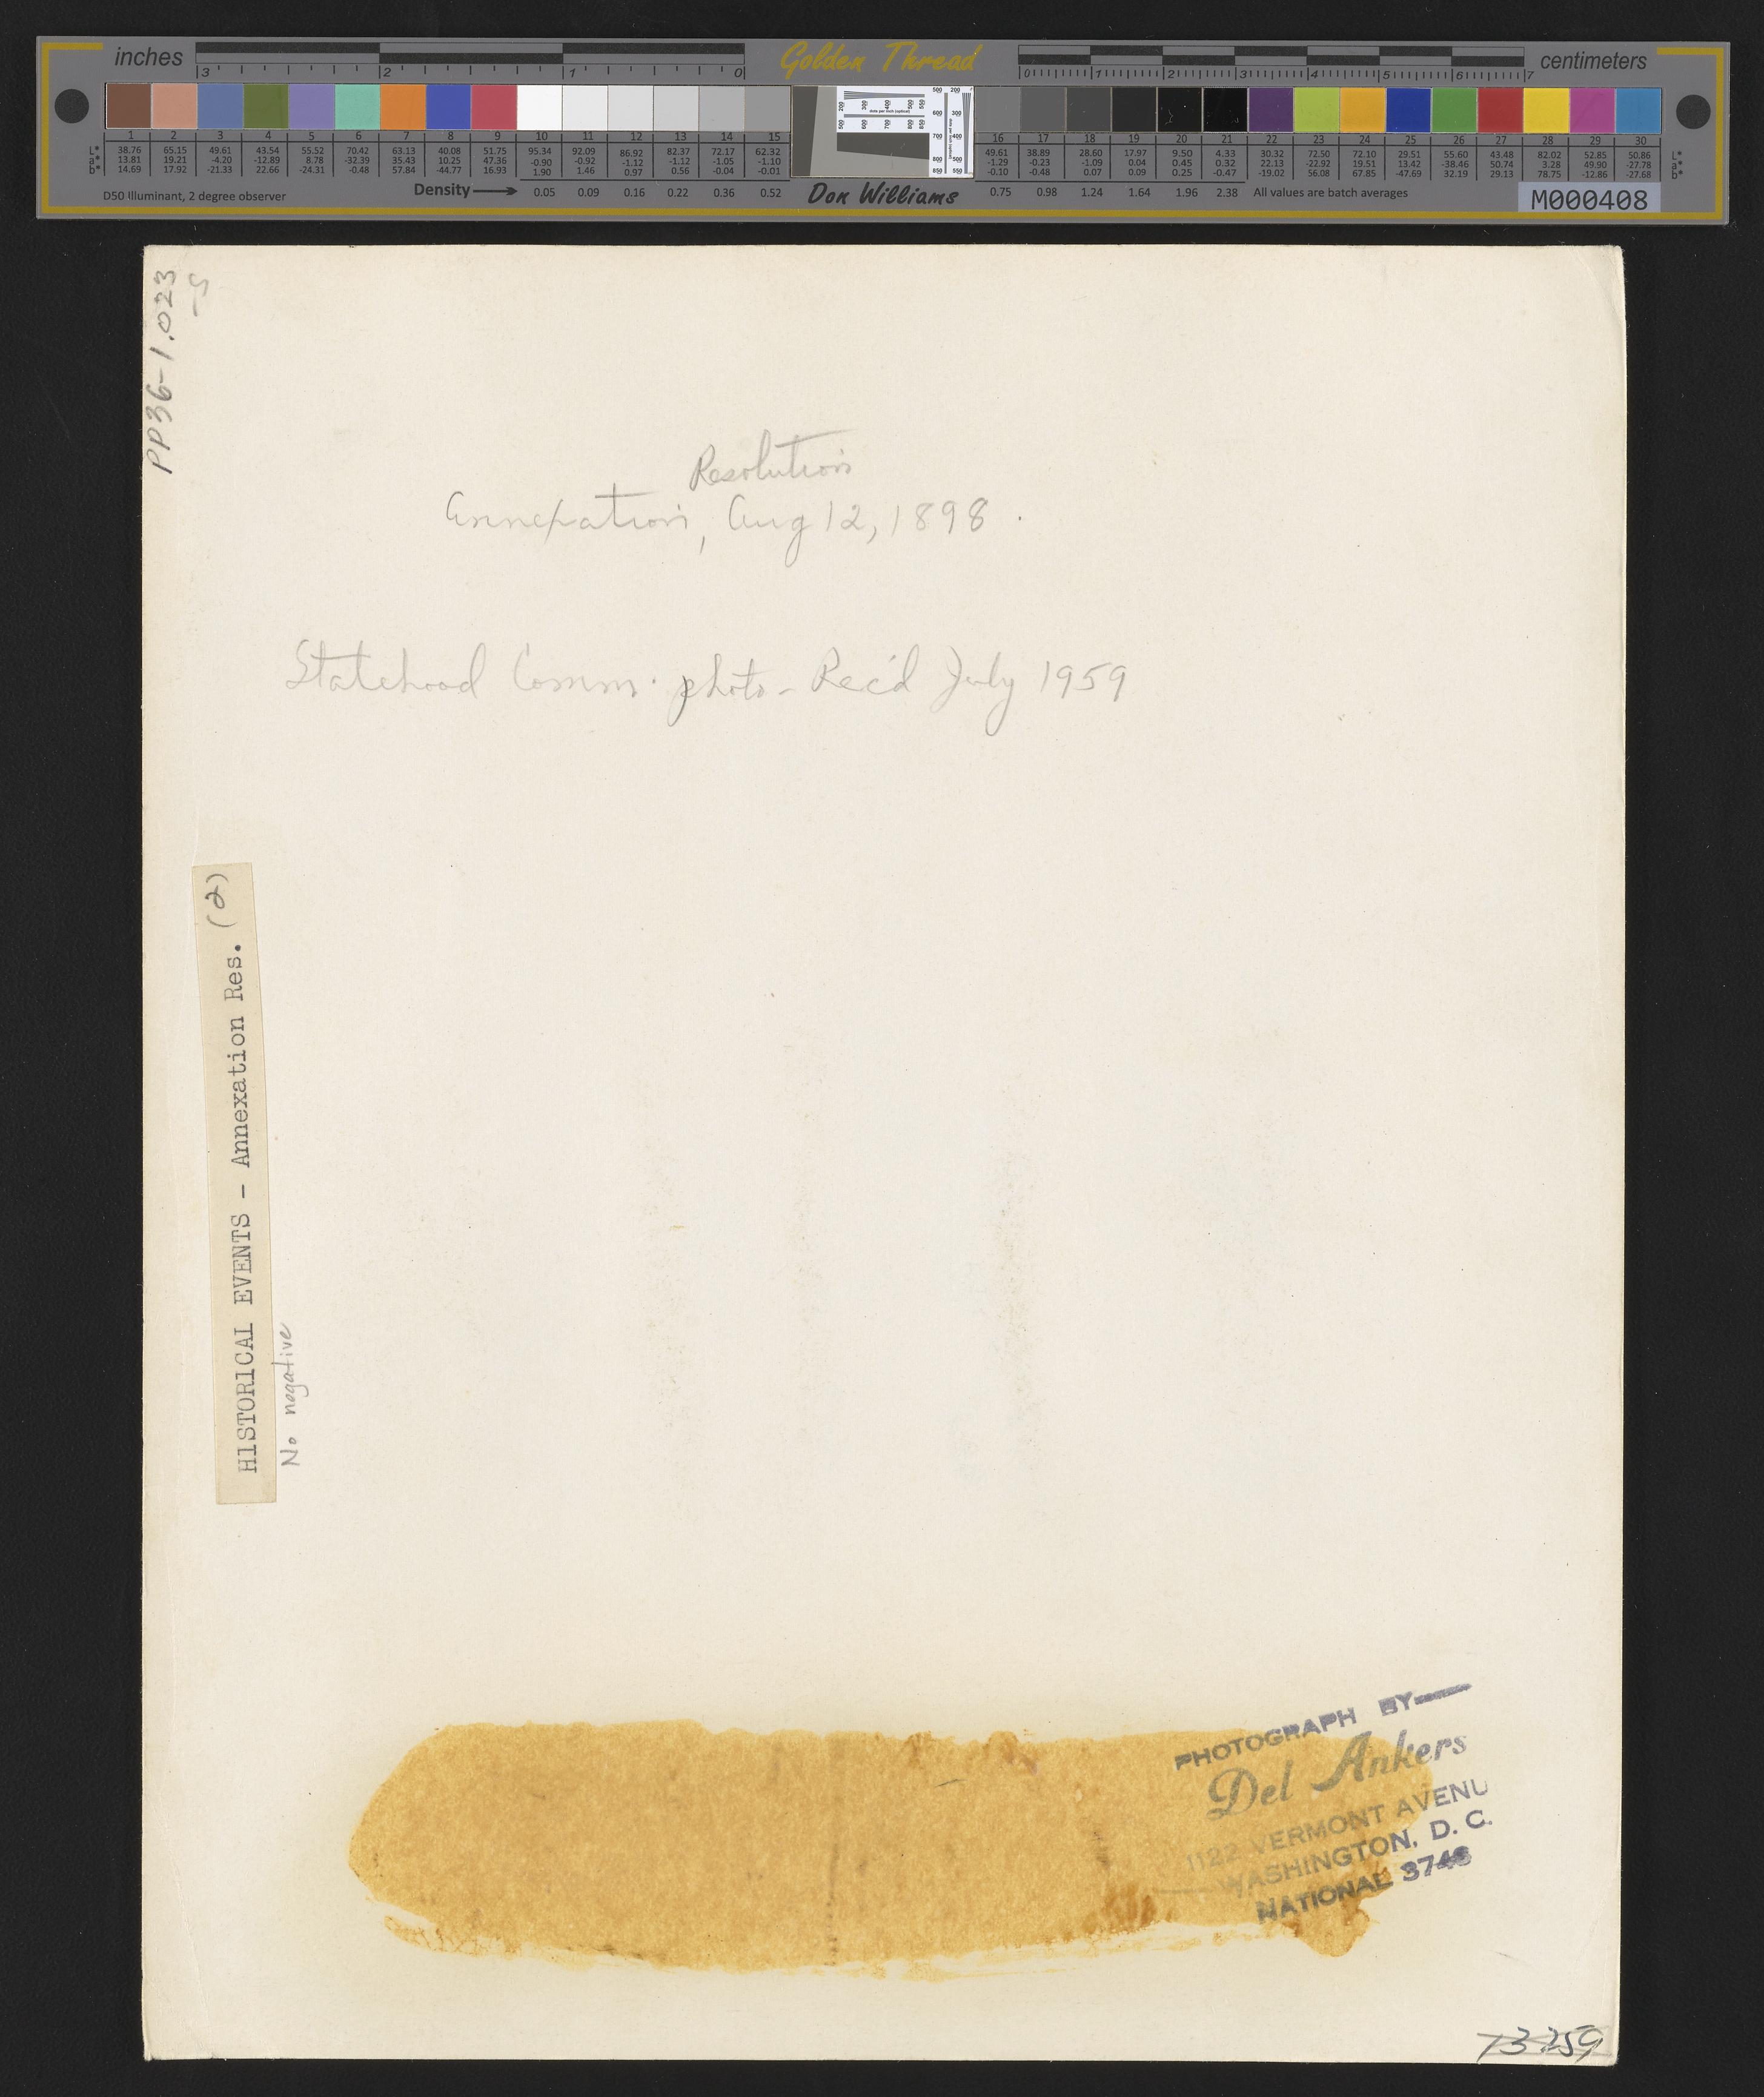 inches
3 2 1 0
Golden Thread
0 1 2 3 4 5 6 7
centimeters
1 2 3 4 5 6 7 8 9 10 11 12 13 14 15
38.76 65.15 49.61 43.54 55.52 70.42 63.13 40.08 51.75 95.34 92.09 86.92 82.37 72.17 62.32
13.81 19.21 -4.20 -12.89 8.78 -32.39 35.43 10.25 47.36 -0.90 -0.92 -1.12 -1.12 -1.05 -1.10
14.69 17.92 -21.33 22.66 -24.31 -0.48 57.84 -44.77 16.93 1.90 1.46 0.97 0.56 -0.04 -0.01
16 17 18 19 20 21 22 23 24 25 26 27 28 29 30
49.61 38.89 28.60 17.97 9.50 4.33 30.32 72.50 72.10 29.51 55.60 43.48 82.02 52.85 50.86
-1.29 -0.23 -1.09 0.04 0.45 0.32 22.13 -22.92 19.51 13.42 -38.46 50.74 3.28 49.90 -27.78
-0.10 -0.48 0.07 0.09 0.25 -0.47 -19.02 56.08 67.85 -47.69 32.19 29.13 78.75 -12.86 -27.68
D50 Illuminant, 2 degree observer
Density 0.05 0.09 0.16 0.22 0.36 0.52
Don Williams
0.75 0.98 1.24 1.64 1.96 2.38 All values are batch averages
M000408
PP36-1.023
-S
Resolution
Annexation, Aug 12, 1898.
Statehood Comm. photo - Rec'd July 1959
HISTORICAL EVENTS - Annexation Res. (2)
No negative
PHOTOGRAPH BY—
Del Ankers
1122 VERMONT AVENU
WASHINGTON, D. C.
NATIONAL 3746
13.259